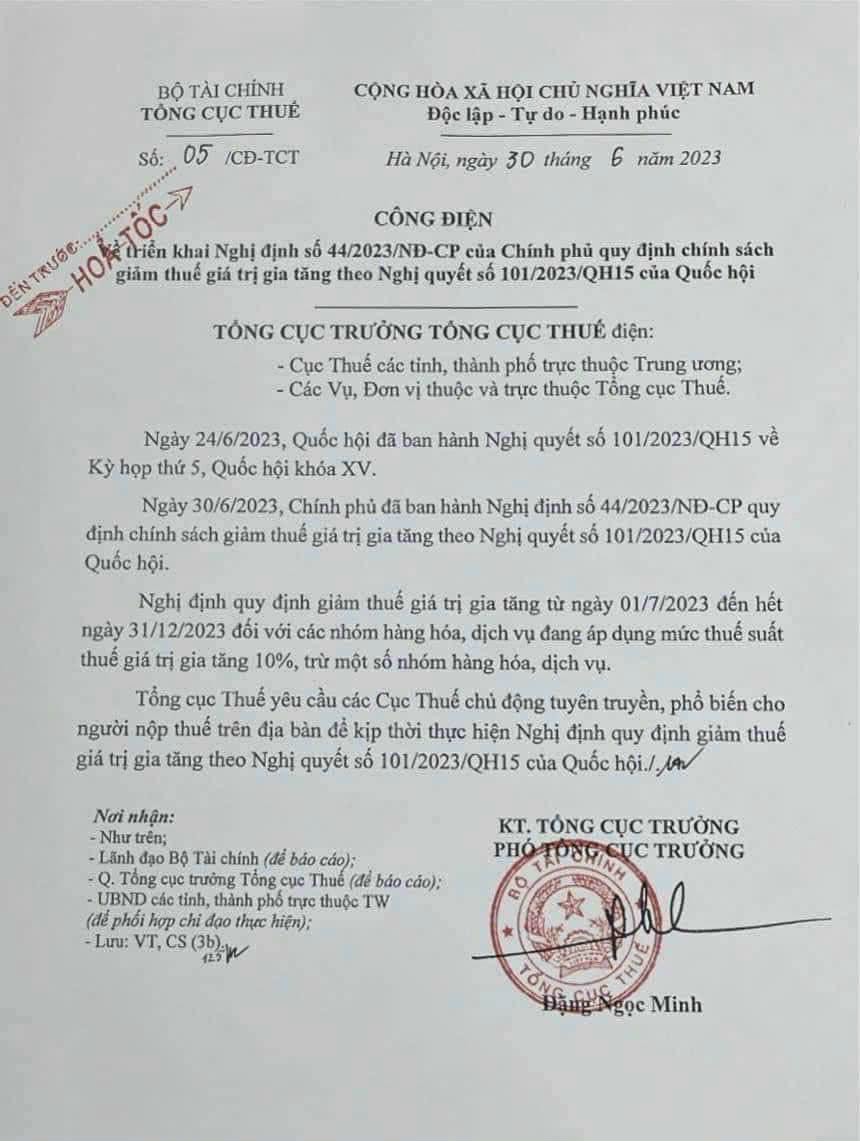 BỘ TÀI CHÍNH
TỔNG CỤC THUẾ
CỘNG HÒA XÃ HỘI CHỦ NGHĨA VIỆT NAM
Độc lập - Tự do - Hạnh phúc
Số: 05 /CĐ-TCT
Hà Nội, ngày 30 tháng 6 năm 2023
ĐẾN TRƯỚC:
HOẢ TỐC
CÔNG ĐIỆN
Về triển khai Nghị định số 44/2023/NĐ-CP của Chính phủ quy định chính sách
giảm thuế giá trị gia tăng theo Nghị quyết số 101/2023/QH15 của Quốc hội
TỔNG CỤC TRƯỞNG TỔNG CỤC THUẾ điện:
- Cục Thuế các tỉnh, thành phố trực thuộc Trung ương;
- Các Vụ, Đơn vị thuộc và trực thuộc Tổng cục Thuế.
Ngày 24/6/2023, Quốc hội đã ban hành Nghị quyết số 101/2023/QH15 về
Kỳ họp thứ 5, Quốc hội khóa XV.
Ngày 30/6/2023, Chính phủ đã ban hành Nghị định số 44/2023/NĐ-CP quy
định chính sách giảm thuế giá trị gia tăng theo Nghị quyết số 101/2023/QH15 của
Quốc hội.
Nghị định quy định giảm thuế giá trị gia tăng từ ngày 01/7/2023 đến hết
ngày 31/12/2023 đối với các nhóm hàng hóa, dịch vụ đang áp dụng mức thuế suất
thuế giá trị gia tăng 10%, trừ một số nhóm hàng hóa, dịch vụ.
Tổng cục Thuế yêu cầu các Cục Thuế chủ động tuyên truyền, phổ biến cho
người nộp thuế trên địa bàn để kịp thời thực hiện Nghị định quy định giảm thuế
giá trị gia tăng theo Nghị quyết số 101/2023/QH15 của Quốc hội./.
Nơi nhận:
- Như trên;
- Lãnh đạo Bộ Tài chính (để báo cáo);
- Q. Tổng cục trưởng Tổng cục Thuế (để báo cáo);
- UBND các tỉnh, thành phố trực thuộc TW
(để phối hợp chỉ đạo thực hiện);
- Lưu: VT, CS (3b).
KT. TỔNG CỤC TRƯỞNG
PHÓ TỔNG CỤC TRƯỞNG
BỘ TÀI CHÍNH
TỔNG CỤC THUẾ
Đặng Ngọc Minh